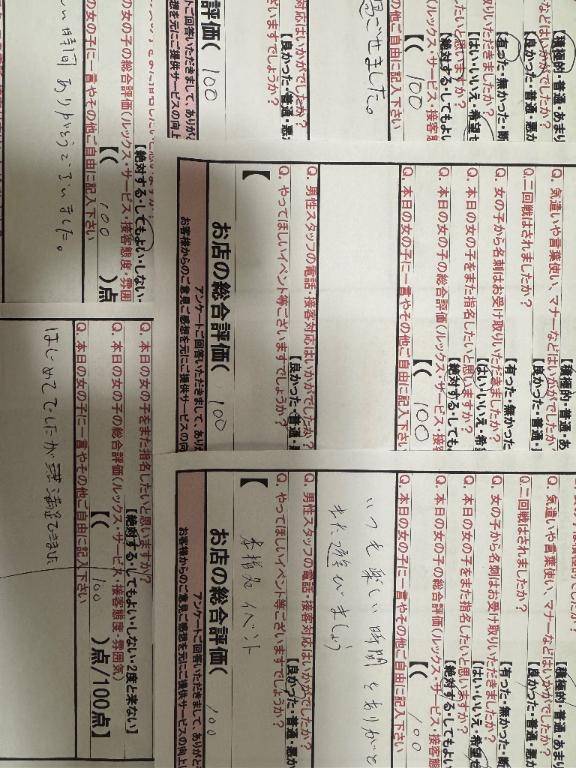 い時間ありがとうございました。
の女の子の総合評価(ルックス・サービス・接客態度・雰囲
【( 100 )点
の女の子に一言やその他ご自由に記入下さい
評価( 100
トご回答いただきまして、ありが
ご感想を元にご提供サービスの向上
対応はいかがでしたか?
【良かった・普通・悪
ざいますでしょうか?
過ごせました。
の他ご自由に記入下さい
( 100
【絶対する・してもよい
【はい・いいえ・希望せ
【有った・無かった・断
などはいかがでしたか?
【良かった・普通・悪か
【積極的・普通・あまり
Q. 気遣いや言葉使い、マナーなどはいかがでしたか?
【良かった・普通・
【積極的・普通・あ
Q. 二回戦はされましたか?
【有った・無かった
Q. 女の子から名刺はお受け取りいただきましたか?
【はい・いいえ・希
Q. 本日の女の子をまた指名したいと思いますか?
【絶対する・しても
Q. 本日の女の子の総合評価(ルックス・サービス・接客
【( 100
Q. 本日の女の子に一言やその他ご自由に記入下さい
Q. 男性スタッフの電話・接客対応はいかがでしたか?
【良かった・普通・
Q. やってほしいイベント等ございますでしょうか?
【
お店の総合評価( 100
アンケートご回答いただきまして、ありが
お客様からのご意見ご感想を元にご提供サービスの向
Q. 本日の女の子をまた指名したいと思いますか?
【絶対する・してもよい・しない・2度と来ない】
Q. 本日の女の子の総合評価(ルックス・サービス・接客態度・雰囲気)
【( 100 )点/100点】
Q. 本日の女の子に一言やその他ご自由に記入下さい
はじめてでしたが満足できました
Q. 気遣いや言葉使い、マナーなどはいかがでしたか?
【良かった・普通・悪か
【積極的・普通・あまり
Q. 二回戦はされましたか?
【有った・無かった・断
Q. 女の子から名刺はお受け取りいただきましたか?
【はい・いいえ・希望せ
Q. 本日の女の子をまた指名したいと思いますか?
【絶対する・してもよい
Q. 本日の女の子の総合評価(ルックス・サービス・接客態
【( 100
Q. 本日の女の子に一言やその他ご自由に記入下さい
いつも楽しい時間をありがと
また遊びましょう
Q. 男性スタッフの電話・接客対応はいかがでしたか?
【良かった・普通・悪か
Q. やってほしいイベント等ございますでしょうか?
【 本指名イベント
お店の総合評価( 100
アンケートご回答いただきまして、ありがと
お客様からのご意見ご感想を元にご提供サービスの向上